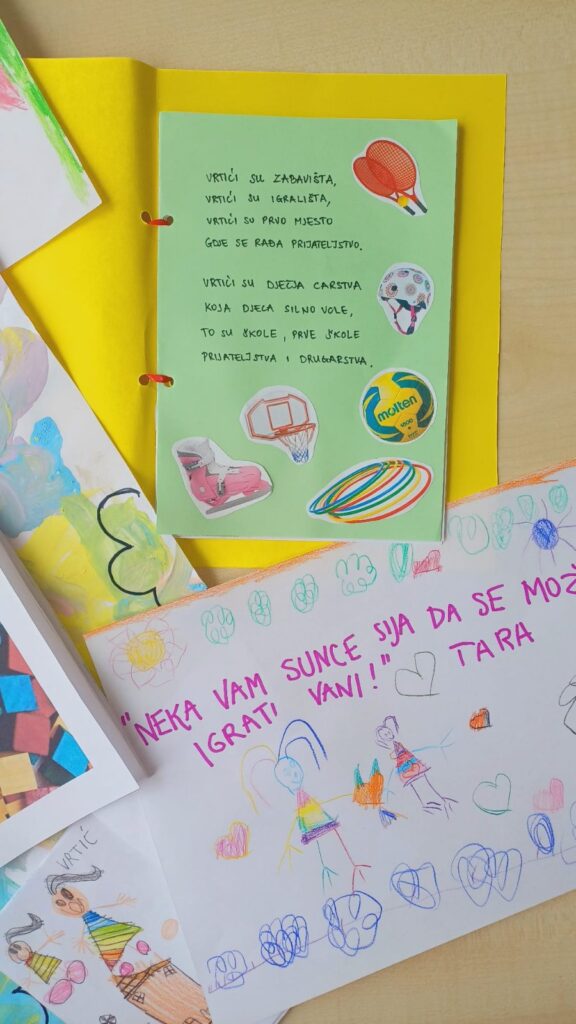 VRTIĆI SU ZABAVIŠTA,
VRTIĆI SU IGRALIŠTA,
VRTIĆI SU PRVO MJESTO
GDJE SE RAĐA PRIJATELJSTVO.
VRTIĆI SU DJEČJA CARSTVA
KOJA DJECA SILNO VOLE,
TO SU ŠKOLE, PRVE ŠKOLE
PRIJATELJSTVA I DRUGARSTVA.
molten
"NEKA VAM SUNCE SIJA DA SE MOŽ
IGRATI VANI!" TARA
VRTIĆ